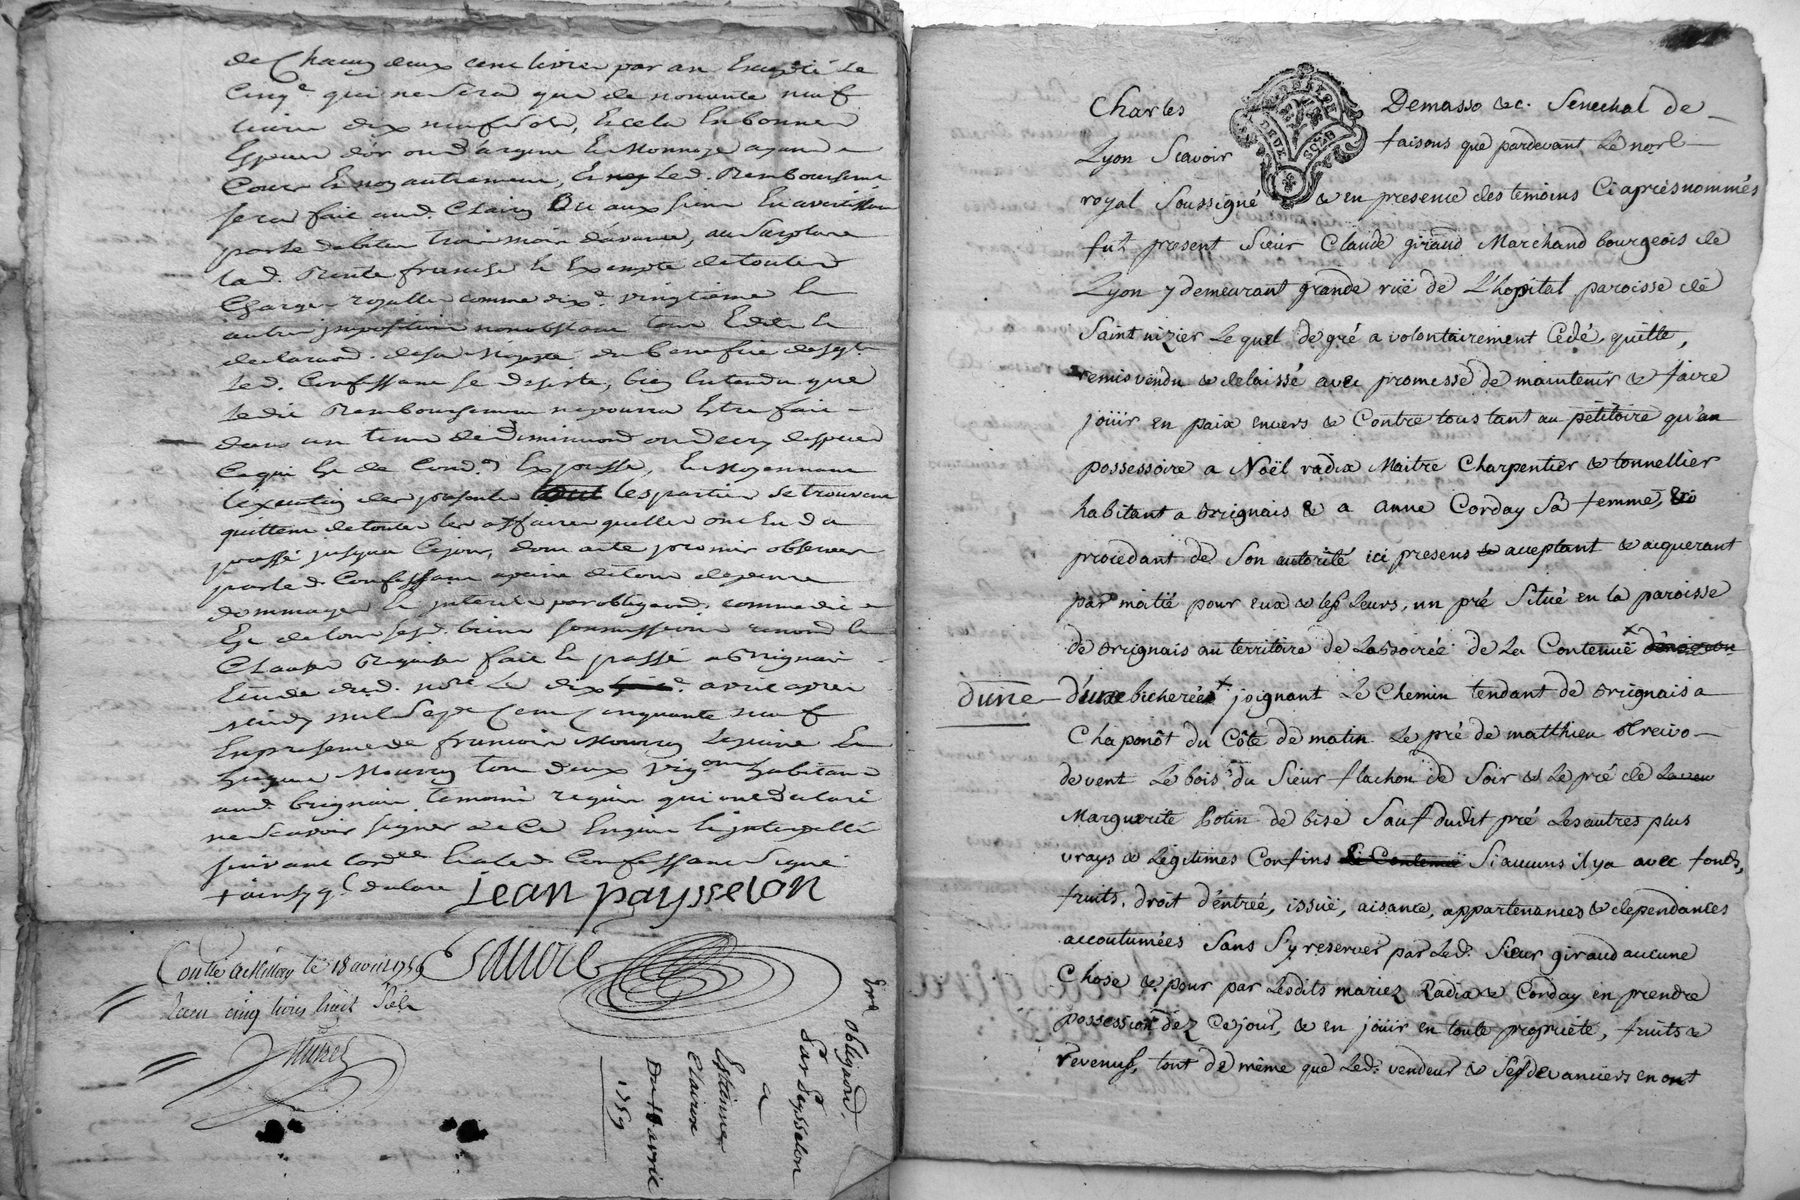 de Chacuz deux cent livres par an Excepté le
Cinqe. qui ne Sera que de nonante neuf
livres dix neuf sols, Et cela En bonnes
Espèces d'or ou d'argent Et Monnoye ayant
Cours Et non autrement, Et Led. Remboursement
sera fait aud. Clairon Ou aux siens En avertissant
trois mois d'avance, au Surplus
lad. Rente franche Et Exempte de toutes
Charges royalles comme dixe. vingtieme Et
autres jmpositions nonobstant tous Edits Et
declarand. de sa Majesté du benefice desqls.
led. Confessant se desiste, bien Entendu que
ledit Remboursement ne pourra Estre fait
dans un tems de diminuond ou decry d'especes
Ce qui Est de Cond. Expresse, Et Moyennant
l'execution des presentes les parties se trouvent
quittent de toutes les affaires quelles ont Eu
passé jusqu'a Ce jour, dont acte promis observer
par led. Confessant a peine de tous depens
dommages Et jnterets par obligaond. comme dit
Est de tous ses d. biens soumissions renond. Et
Clauses Requises fait Et passé a Brignais
Etude dud. nore. Le dix avril apres
midy mil Sept Cent Cinquante neuf
En presence de francois Mouron Et
Mouron tous deux vigons habitans
aud. brignais temoins requis qui ont declaré
ne Scavoir signer de Ce Enquis Et jnterpellé
suivant l'ordce. Et a led. Confessant Signé
+ ainsy ql. declare jean paysselon
Conllé a Millery le 18 avril 1759 Sauvre
Recu cinq livres huit Sols
Era obligaond.
Sar. Peysselon
a
Estienne
Clairon
Du 10 avril
1759
Charles Demasso &c. Senechal de
Lyon Scavoir faisons que pardevant Le nore.
royal Soussigné & en presence des temoins Ci après nommés
fut present Sieur Claude giraud Marchand bourgeois de
Lyon y demeurant grande ruë de L'hopital paroisse de
Saint nizier Lequel de gré a volontairement Cedé, quitte,
remis vendu & delaissé avec promesse de maintenir & faire
joüir en paix envers & Contre tous tant au pétitoire qu'au
possessoire a Noël radix Maitre Charpentier & tonnellier
habitant a Brignais & a anne Corday Sa femme,
procedant de Son autorité ici presens & acceptant & acquerant
par moitié pour eux & les Leurs, un pré Situé en la paroisse
de Brignais au territoire de La de La Contenuë
d'une d'une bicherée joignant Le Chemin tendant de Brignais a
Chaponôt du Côté de matin Le pré de matthieu
de vent Le bois du Sieur flachon de Soir & Le pré de
Marguerite Botin de bise Sauf dudit pré Les autres plus
vrays & Légitimes Confins Si aucuns il y a avec fonds,
fruits, droit d'entrée, issuë, aisance, appartenances & dependances
accoutumées Sans S'y reserver par Led. Sieur giraud aucune
Chose & pour par Lesdits mariez Radix & Corday en prendre
possession dez Ce jour, & en joüir en toute propriété, fruits &
revenus, tout de même que Led. vendeur & Ses devanciers en ont